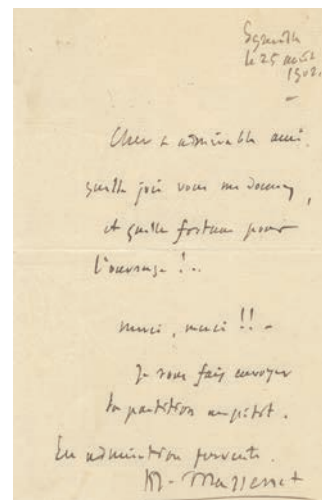 Égreville
le 25 août
1902.
Cher & admirable ami.
quelle joie vous me donnez,
et quelle fortune pour
l'ouvrage !..
merci, merci !! -
Je vous fais envoyer
la partition au plus tôt.
En admiration fervente.
M. Massenet